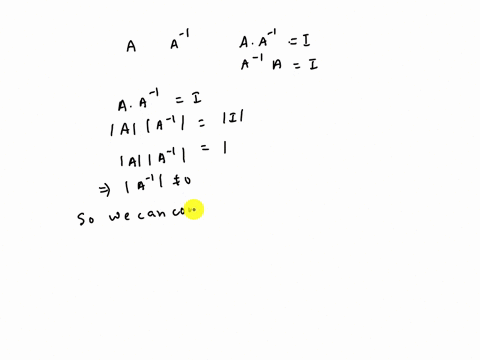 A A⁻¹ A. A⁻¹ = I
A⁻¹ A = I
A. A⁻¹ = I
|A| |A⁻¹| = |I|
|A| |A⁻¹| = 1
⇒ |A⁻¹| ≠ 0
So we can co